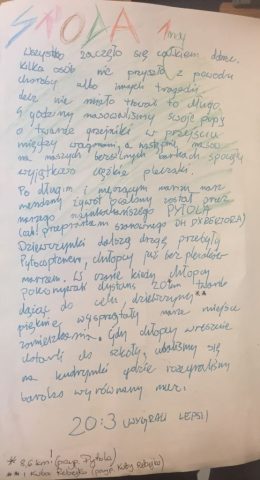 ŚRODA 1 maj
Wszystko zaczęło się całkiem dobrze.
Kilka osób nie przyszło z powodu
choroby albo innych tragedii
lecz nie miało trwać to długo.
4 godziny masowaliśmy swoje pupy
o twarde grzejniki w przejściu
między wagonami, a następnie
na naszych bezsilnych barkach spoczęły
wyjątkowo ciężkie plecaki.
Po długim i męczącym marszu nasz
żywot ocalony został przez
naszego najukochańszego PYTOLA
(tzn. przepraszam szanownego DH DYREKTORA)
Dziewczynki dalszą drogę przebyły
Pytolowozem, chłopcy już bez plecaków
marszem. W czasie kiedy chłopcy
pokonywali dystans 20km*
dążąc do celu, dziewczynki**
pięknie wysprzątały nasze miejsce
zamieszkania. Gdy chłopcy wreszcie
dotarli do szkoły, udaliśmy się
na gdzie rozegraliśmy
bardzo wyrównany mecz.
20:3 (WYGRALI LEPSI)
* 8,6 km! (przyp. Pytola)
** i Kuba Rebejko (przyp. Kuby Rebejko)